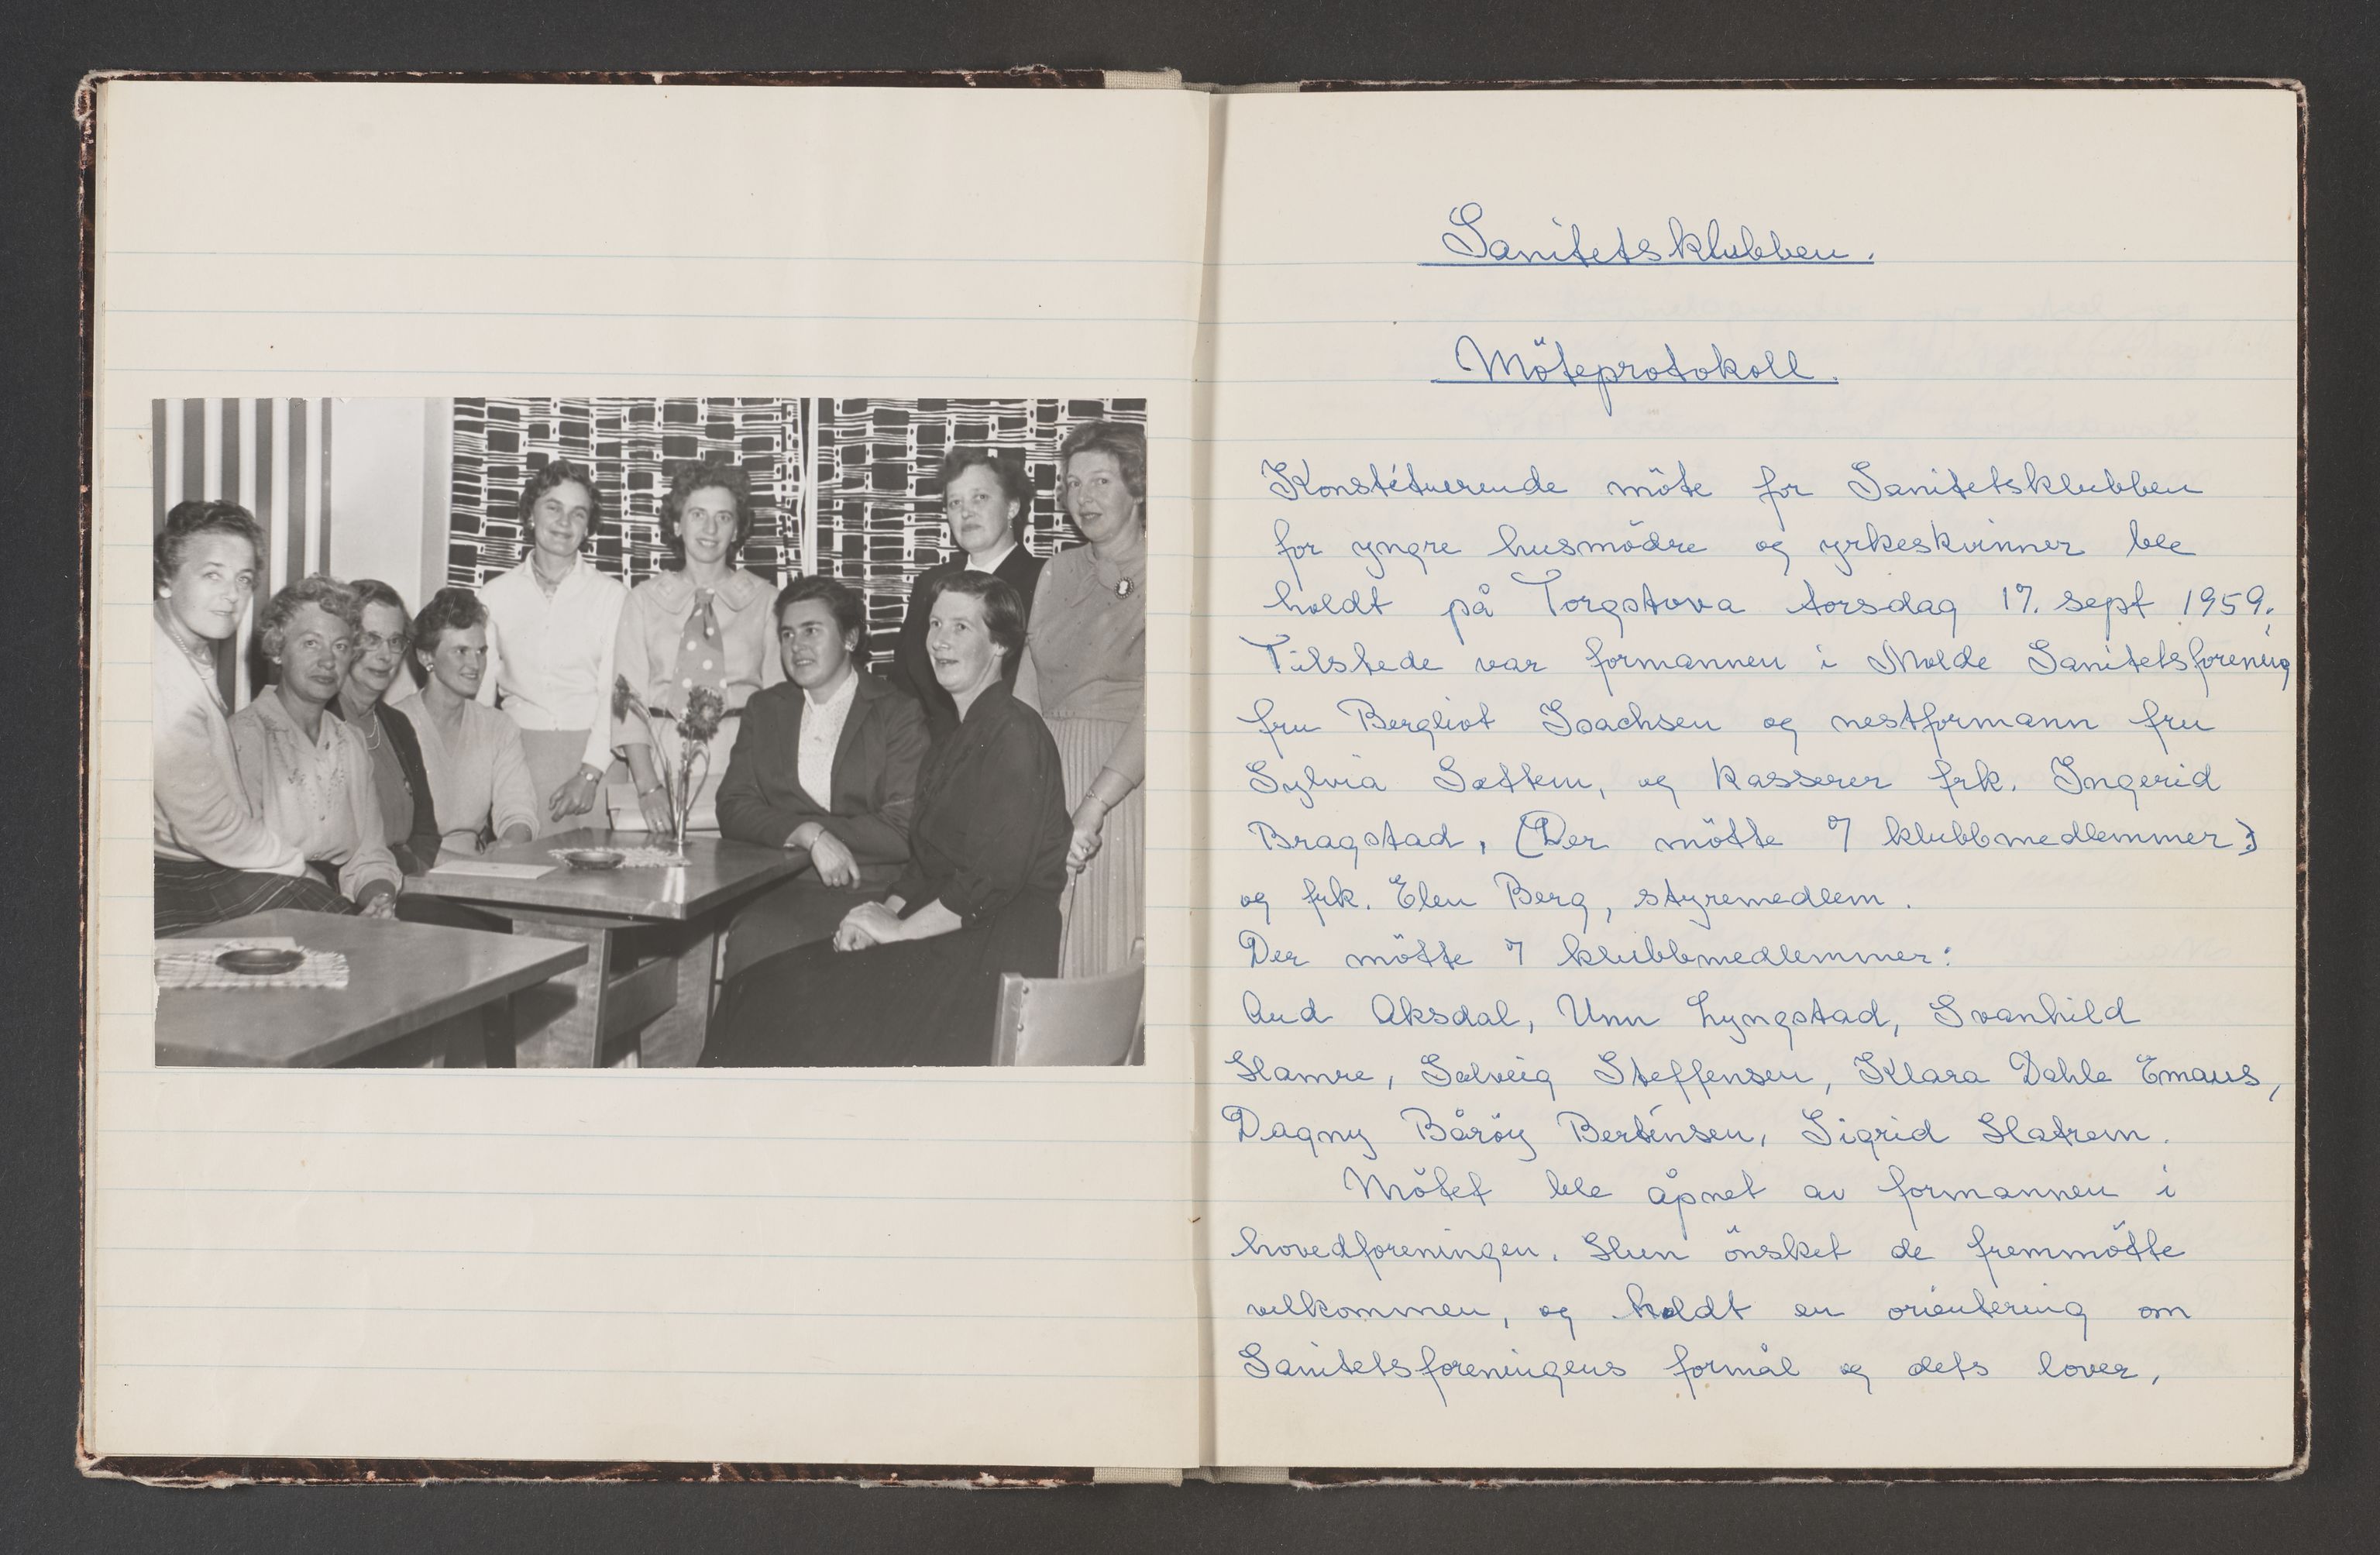 Sanitetsklubben.
Möteprotokoll.
Konstituerende möte for Sanitetsklubben
for yngre husmödre og yrkeskvinner ble
holdt på Torgstova torsdag 17. sept 1959.
Tilstede var formannen i Molde Sanitetsforening
fru Bergliot Isachsen og nestformann fru
Sylvia Sættem, og kasserer frk. Ingerid
Bragstad, (Der mötte 7 klubbmedlemmer:)
og frk. Elen Berg, styremedlem.
Der mötte 7 klubbmedlemmer:
Aud Aksdal, Unn Lyngstad, Svanhild
Hamre, Solveig Steffensen, Klara Dahle Emaus,
Dagny Båröy Bertinsen, Sigrid Hatrem.
Mötet ble åpnet av formannen i
hovedforeningen. Hun önsket de fremmötte
velkommen, og holdt en orientering om
Sanitetsforeningens formål og dets lover,